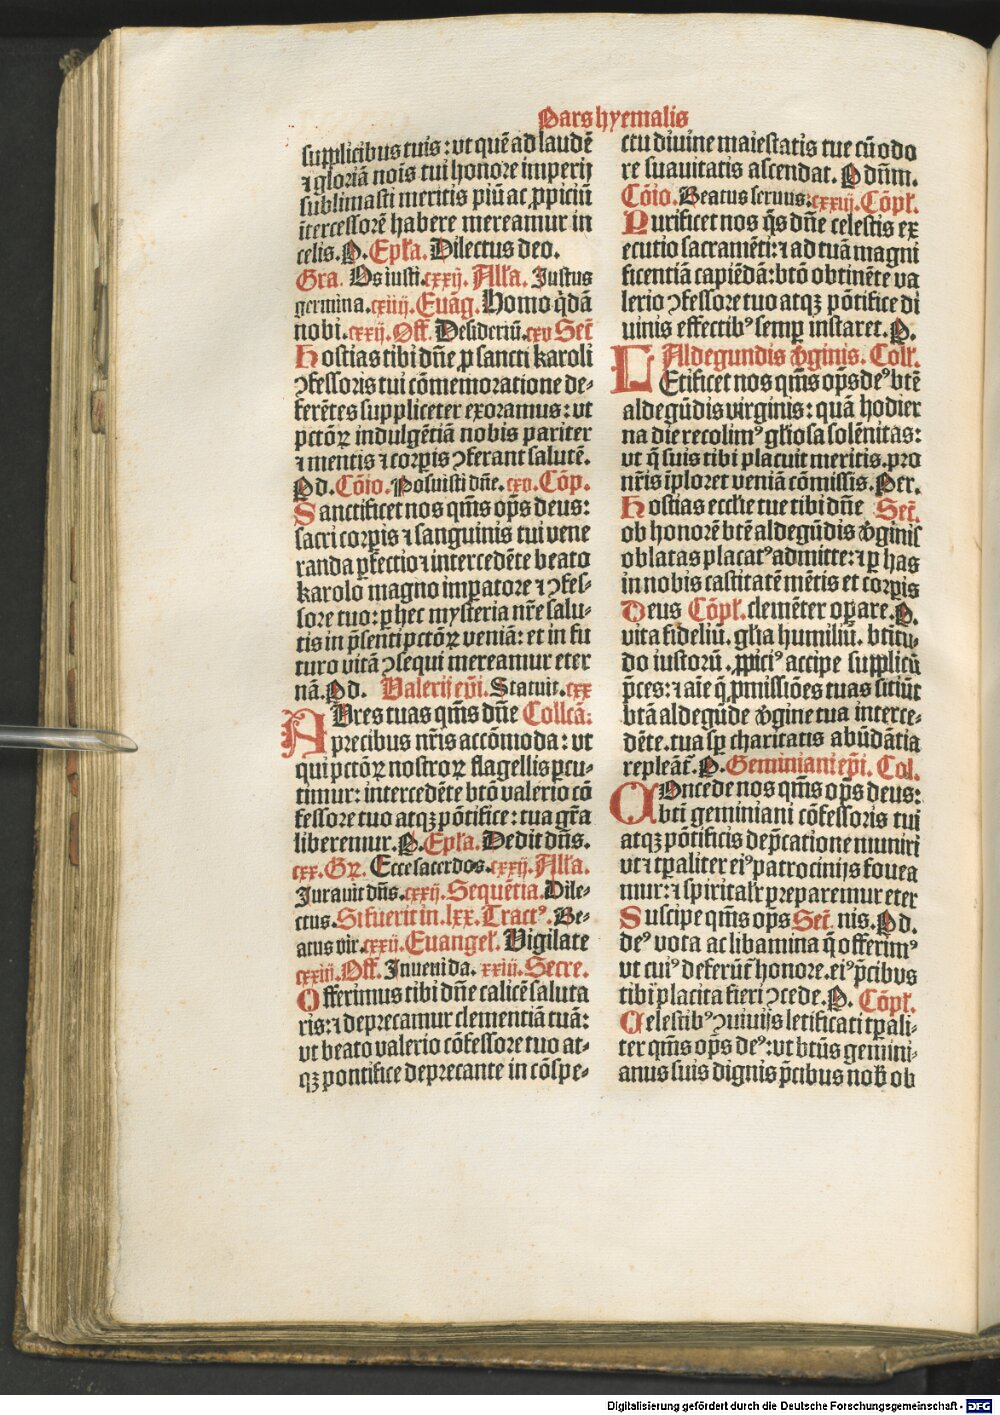 Pars hyemalis
supplicibus tuis: vt quē ad laudē
⁊ gloriā nois tui honore imperij
sublimasti meritis piū ac ꝓpiciū
ītercessorē habere mereamur in
celis. P. Epła. Dilectus deo.
Gra. Os iusti. cxxij. Alła. Iustus
germina. cxiiij. Euāg. Homo q̄dā
nobi. cxxij. Off. Desideriū. cxv Secł
Hostias tibi dn̄e ꝑ sancti karoli
ꝯfessoris tui cōmemoratione de⸗
ferētes suppliceter exoramus: vt
pctōꝝ indulgētiā nobis pariter
⁊ mentis ⁊ corꝑis ꝯferant salutē.
Pd. Cōio. Posuisti dn̄e. cxv. Cōp.
Sanctificet nos qm̄s op̄s deus:
sacri corꝑis ⁊ sanguinis tui vene
randa ꝑfectio ⁊ intercedēte beato
karolo magno imꝑatore ⁊ ꝯfes⸗
sore tuo: ꝑ hec mysteria nr̄e salu⸗
tis in p̄senti pctōꝝ veniā: et in fu
turo vitā ꝯsequi mereamur eter
nā. Pd. Valerij ep̄i. Statuit. cxx
AUres tuas qm̄s dn̄e Collcā:
precibus nr̄is accōmoda: vt
qui pctōꝝ nostroꝝ flagellis ꝑcu⸗
timur: intercedēte btō valerio cō
fessore tuo atqꝫ pōtifice: tua gr̄a
liberemur. P. Epła. Dedit dn̄s.
cxx. Gꝝ. Ecce sacerdos. cxxij. Alła.
Iurauit dn̄s. cxxij. Sequētia. Dile⸗
ctus. Si fuerit in. lxx. Tractꝰ. Be⸗
atus vir. cxxii. Euangeł. Vigilate
cxxiij. Off. Inueni da. xxiij. Secre.
Offerimus tibi dn̄e calicē saluta
ris: ⁊ deprecamur clementiā tuā:
vt beato valerio cōfessore tuo at⸗
qꝫ pontifice deprecante in cōspe⸗
ctu diuine maiestatis tue cū odo
re suauitatis ascendat. P dn̄m.
Cōio. Beatus seruus. cxxiij. Cōpł.
Purificet nos q̄s dn̄e celestis ex
ecutio sacramēti: ⁊ ad tuā magni
ficentiā capiēdā: btō obtinēte va
lerio ꝯfessore tuo atqꝫ pōtifice di
uinis effectibꝰ semꝑ instaret. P.
Aldegundis v̄ginis. Colł.
LEtificet nos qm̄s op̄s deꝰ btē
aldegūdis virginis: quā hodier
na die recolimꝰ gl̄iosa solēnitas:
vt q̄ suis tibi placuit meritis. pro
nr̄is īploret veniā cōmissis. Per.
Hostias eccłie tue tibi dn̄e Secł.
ob honorē btē aldegūdis v̄ginis
oblatas placatꝰ admitte: ⁊ ꝑ has
in nobis castitatē mētis et corꝑis
Deus Cōpł. clemēter oꝑare. P.
vita fideliū. gl̄ia humiliū. btitu⸗
do iustorū. ꝓpiciꝰ accipe supplicū
p̄ces: ⁊ aīe q̄ ꝓmissiōes tuas sitiūt
btā aldegūde v̄gine tua interce⸗
dēte. tua sꝑ charitatis abūdātia
repleāt̄. P. Geminiani ep̄i. Col.
COncede nos qm̄s op̄s deus:
bti geminiani cōfessoris tui
atqꝫ pōtificis dep̄catione muniri
vt ⁊ tꝑaliter eiꝰ patrocinijs fouea
mur: ⁊ spiritałr p̄paremur eter
Suscipe qm̄s op̄s Secł. nis. Pd.
deꝰ vota ac libamina q̄ offerimꝰ
vt cuiꝰ deferūt̄ honore. eiꝰ p̄cibus
tibi placita fieri ꝯcede. P. Cōpł.
Celestibꝰ ꝯuiuijs letificati tꝑali⸗
ter qm̄s op̄s deꝰ: vt btūs gemini⸗
anus suis dignis p̄cibus nob̄ ob
Digitalisierung gefördert durch die Deutsche Forschungsgemeinschaft - DFG